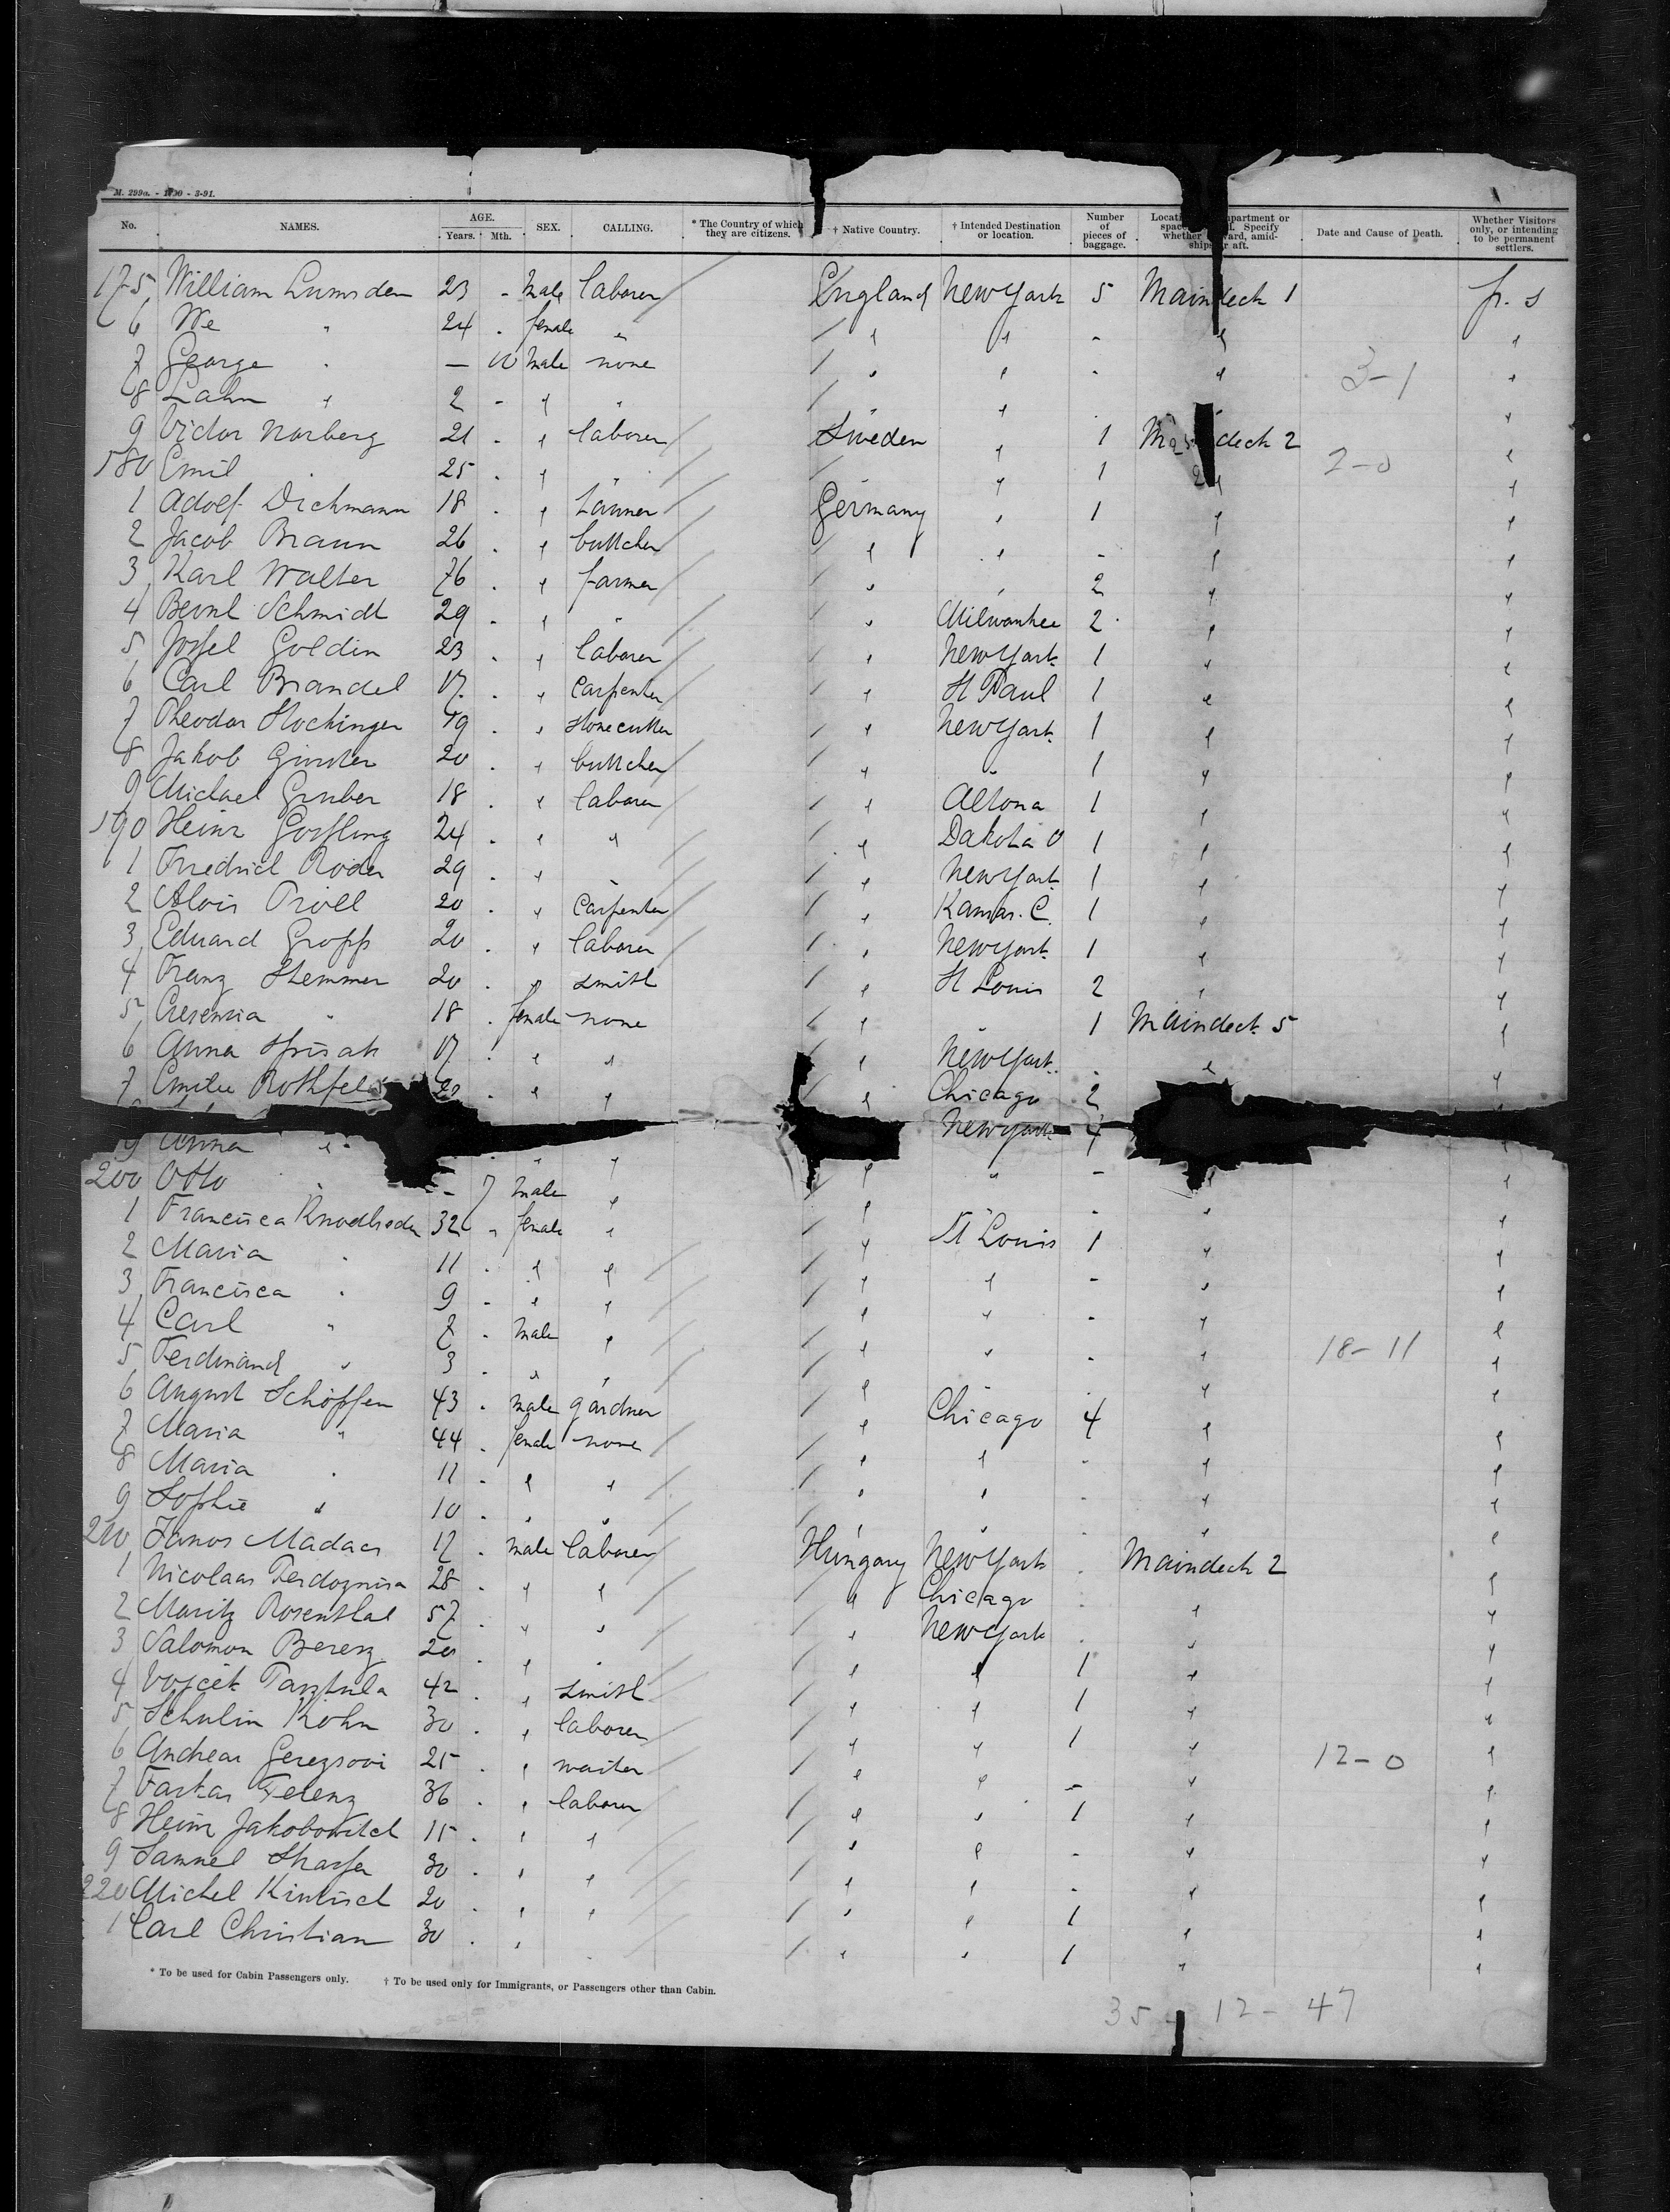 M. 299a. - 1700 - 3-91.
No. NAMES. AGE. Years. Mth. SEX. CALLING. * The Country of which they are citizens. † Native Country. † Intended Destination or location. Number of pieces of baggage. Date and Cause of Death. Whether Visitors only, or intending to be permanent settlers.
175 William Lumsden 23 - male laborer England New York 5 Maindeck 1
6 We " 24 . female " / " " - "
7 George " — male none / " " - " " 3-1
8 Lahn " 2 - " " / " " "
9 Victor Norberg 21 . " laborer Sweden " 1 deck 2 "
180 Emil " 25 . " " / " 1 " 2-0
1 Adolf Dichmann 18 . " Germany " 1 " "
2 Jacob Braun 26 . " buttcher / " " - " "
3 Karl Walter 76 . " farmer / " " 2 " "
4 Schmidt 29 . " " / " Milwaukee 2 " "
5 Jossel Goldin 23 . " laborer / " New York 1 " "
6 Carl Brandel 17 . " carpenter / " St Paul 1 " "
7 Theodor Stockinger 19 . " stonecutter / " New York 1 " "
8 Jakob Ginster 20 . " buttcher / " " 1 " "
9 Michael Gruber 18 . " laborer / " Altona 1 " "
190 Heinr 24 . " " / " Dakota 1 " "
1 Friedrich Röder 29 . " " / " New York 1 " "
2 Alois Pröll 20 . " carpenter / " Kansas. C. 1 " "
3 Eduard Gropp 20 . " laborer / " New York 1 " "
4 Franz Stemmer 20 . " smith / " St Louis 2 " "
5 " 18 . female none / " " 1 Maindeck 5 "
6 Anna 17 . " " / " New York . " "
7 Emilie Rothfels . " " / " Chicago 2 "
New York 4
9 Anna " " "
200 Otto " - 7 male " " " - "
1 Francisca 32 " female " / " St Louis 1 " "
2 Maria " 11 . " " / " " - " "
3 Francisca " 9 - " " / " " - " "
4 Carl " 7 . male " / " " - " " 18-11
5 Ferdinand " 3 . " " / " " . " "
6 August Schöpfer 43 . male gardner / " Chicago 4 " "
7 Maria " 44 . female none / " " - " "
8 Maria " 11 - " " / " " - " "
9 Sophie " 10 . " " / " " - " "
210 Janos Madacs 17 . male laborer Hungary New York . Maindeck 2 "
1 Nicolaus 28 . " " / " Chicago . " "
2 Moritz Rosenthal 57 . " " / " New York . " "
3 Salomon Berenz 20 . " " / " " 1 " "
4 42 . " smith / " " 1 " "
5 Kohn 30 . " laborer / " " 1 " "
6 Andreas 25 . " waiter / " " - " " 12-0
7 Farkas Ferenz 36 . " laborer / " " 1 " "
8 Heinr Jakobowitch 15 . " " / " " - " "
9 Samuel 30 . " " / " " - " "
220 Michel 20 . " " / " " 1 " "
1 Carl Christian 30 . " " / " " 1 " "
* To be used for Cabin Passengers only. † To be used only for Immigrants, or Passengers other than Cabin.
35 - 12 - 47